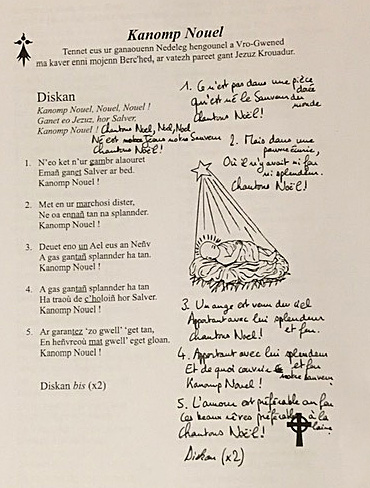 Kanomp Nouel
Tennet eus ur ganaouenn Nedeleg hengounel a Vro-Gwened
ma kaver enni mojenn Berc'hed, ar vatezh pareet gant Jezuz Krouadur.
Diskan
Kanomp Nouel, Nouel, Nouel !
Ganet eo Jezuz, hor Salver,
Kanomp Nouel ! Chantons Noel, Noel, Noel
Né est notre Jésus notre Sauveur
Chantons Noël !
1. N'eo ket n'ur gambr alaouret
Emañ ganet Salver ar bed.
Kanomp Nouel !
2. Met en ur marchosi dister,
Ne oa ennañ tan na splannder.
Kanomp Nouel !
3. Deuet eno un Ael eus an Neñv
A gas gantañ splannder ha tan.
Kanomp Nouel !
4. A gas gantañ splannder ha tan
Ha traoù de c'holoiñ hor Salver.
Kanomp Nouel !
5. Ar garantez 'zo gwell' 'get tan,
En heñvreoù mat gwell' eget gloan.
Kanomp Nouel !
Diskan bis (x2)
1. Ce n'est pas dans une pièce
dorée
qu'est né le Sauveur du
monde
Chantons Noël !
2. Mais dans une
pauvre écurie,
Où il n'y avait ni feu
ni splendeur.
Chantons Noël !
3. Un ange est venu du ciel
Apportant avec lui splendeur
et feu.
Chantons Noël !
4. Apportant avec lui splendeur
et feu
Et de quoi couvrir
notre sauveur
Kanomp Nouel !
5. L'amour est préférable au feu
Les beaux rêves préférables à la
laine
Chantons Noël !
Diskan (x2)